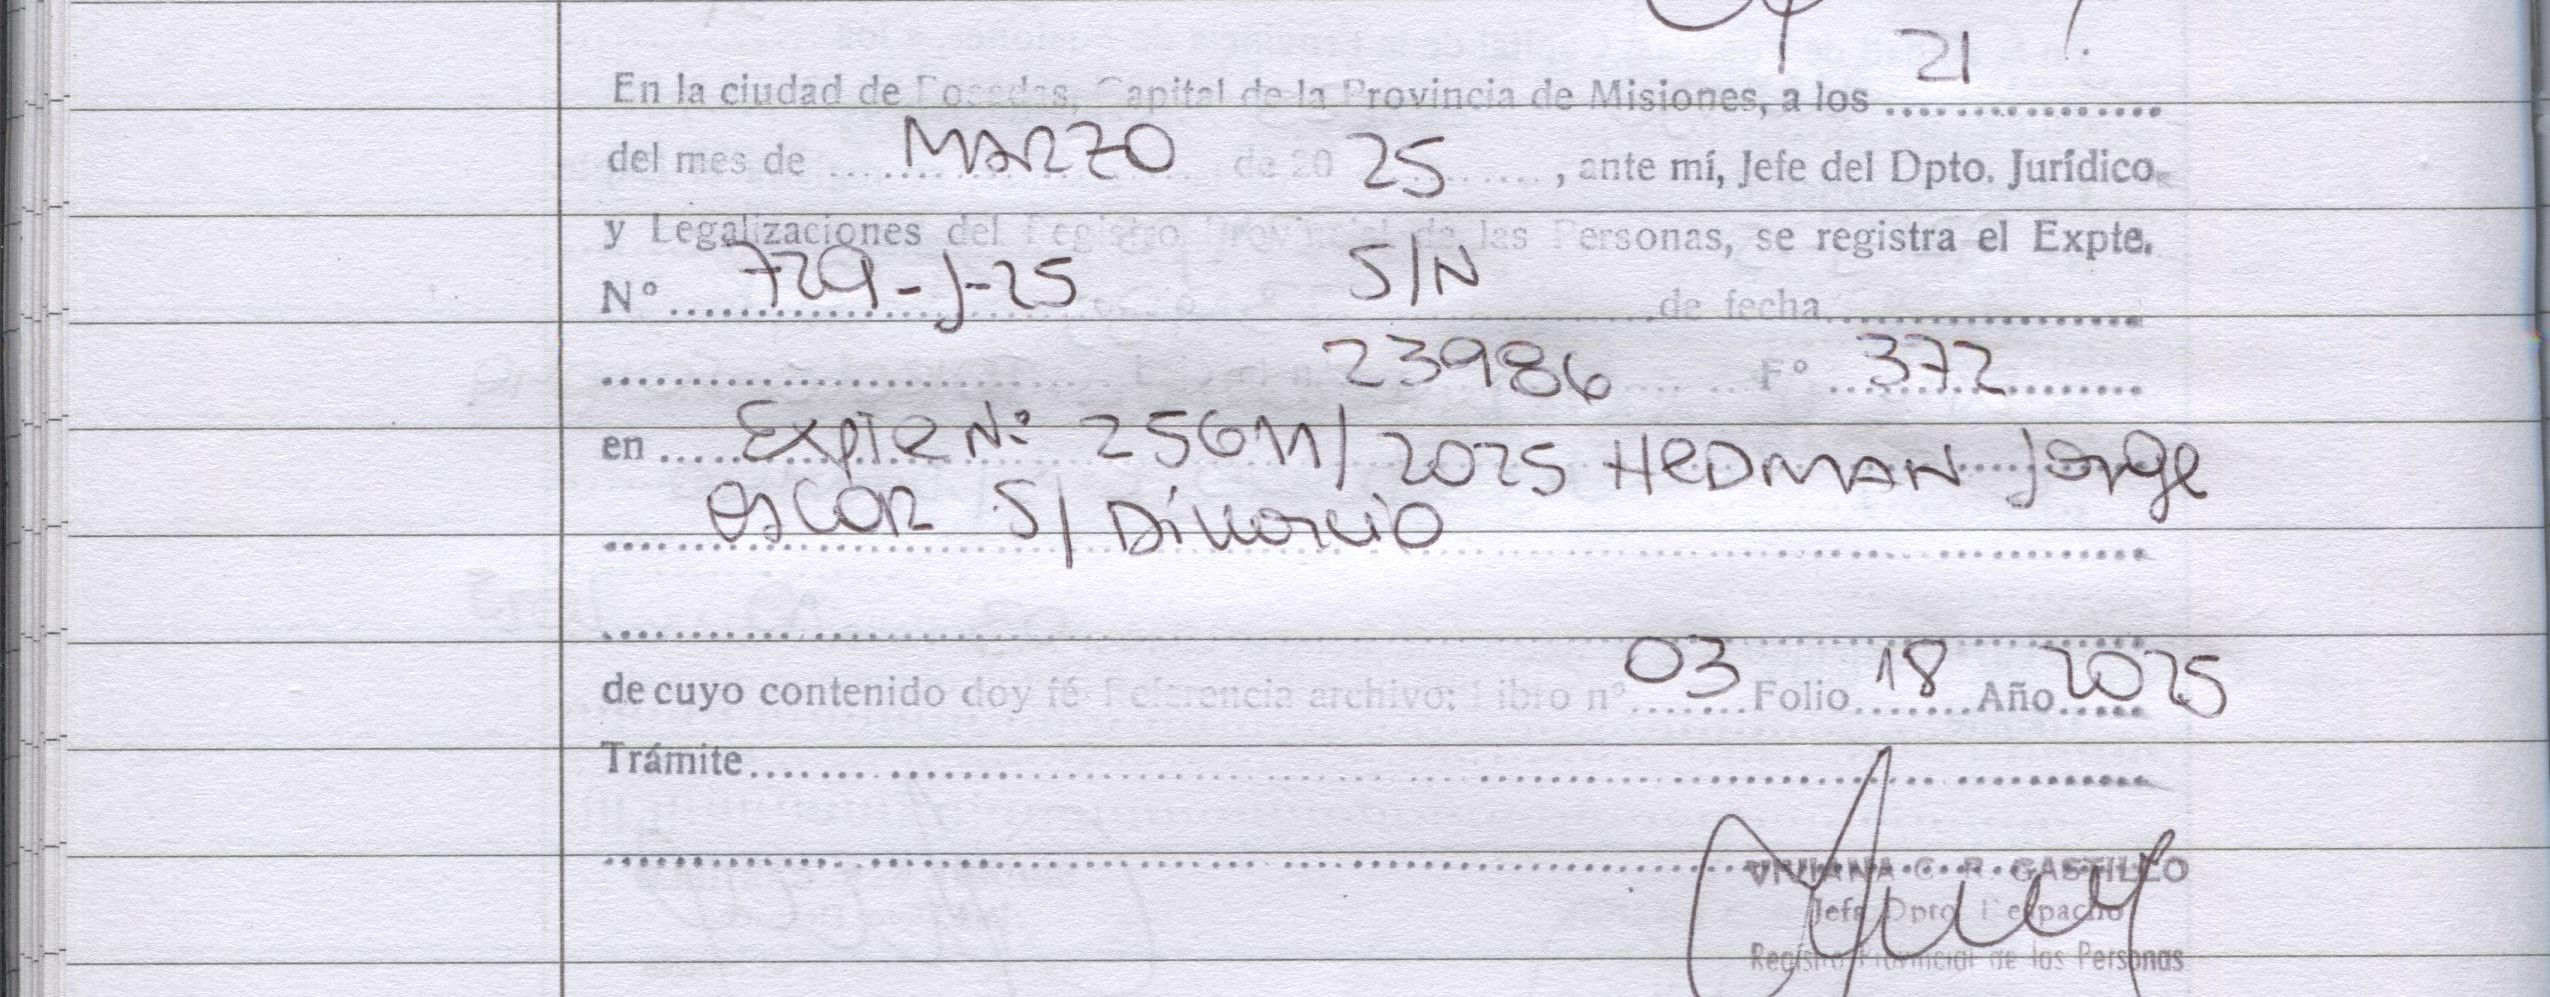 21
En la ciudad de Posadas, Capital de la Provincia de Misiones, a los ................
del mes de ........ MARZO de 20 25 ........, ante mí, Jefe del Dpto. Jurídico
y Legalizaciones del Registro Provincial de las Personas, se registra el Expte.
Nº ........ 729-J-25 S/N ........ de fecha ................
................ 23986 ........ Fº ........ 372 ........
en ........ Expte Nº: 25611/2025 HEDMAN Jorge
OSCAR S/ Divorcio
................
de cuyo contenido doy fé Referencia archivo: Libro nº 03 Folio 18 Año 2025
Trámite................
VIVIANA C. R. CASTILLO
Jefe Dpto. Despacho
Registro Provincial de las Personas